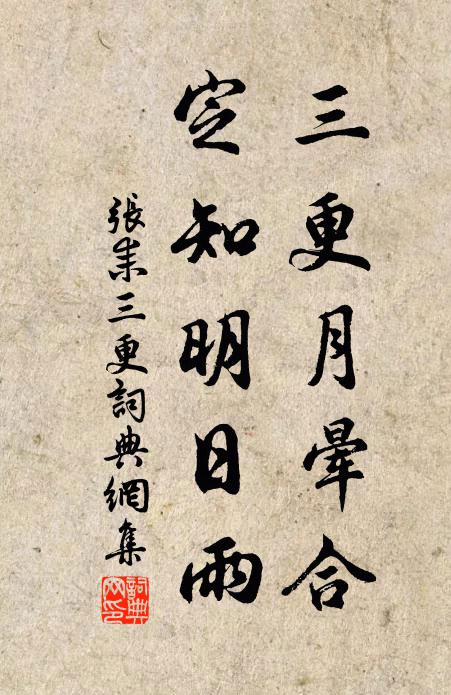 三更月暈合
定知明日雨
張耒三更詞典網集
詞典網印